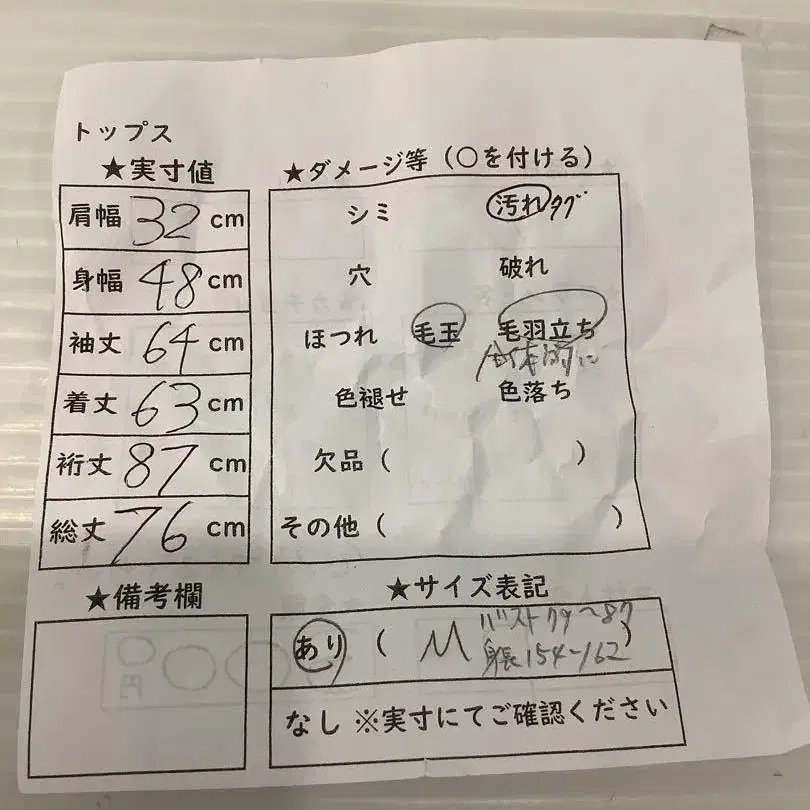 トップス
★実寸値
肩幅 32 cm
身幅 48 cm
袖丈 64 cm
着丈 63 cm
裄丈 87 cm
総丈 76 cm
★ダメージ等（○を付ける）
シミ 汚れ タグ
穴 破れ
ほつれ 毛玉 毛羽立ち
全体的に
色褪せ 色落ち
欠品（ ）
その他（ ）
★備考欄
★サイズ表記
あり（ M バスト79〜87
身長154〜162 ）
なし ※実寸にてご確認ください